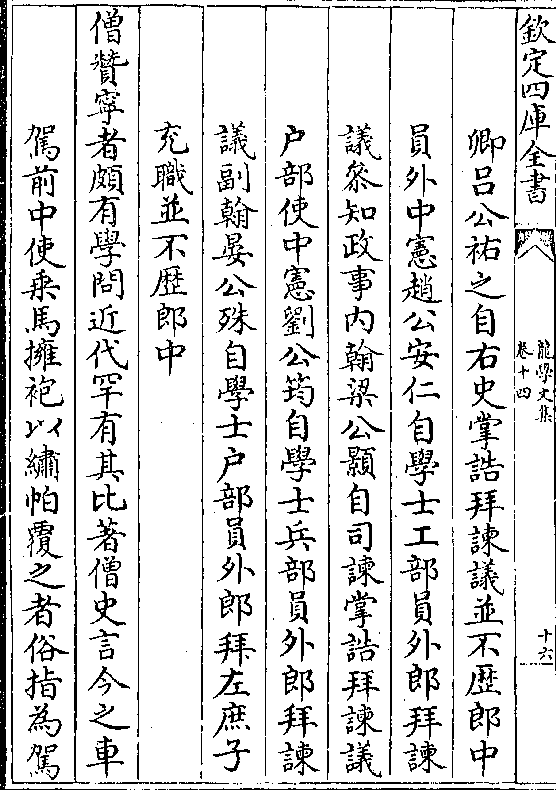 欽定四庫全書
龍學文集
卷十四
十六
卿呂公祐之自右史掌誥拜諫議並不歴郎中
員外中憲趙公安仁自學士工部員外郎拜諫
議叅知政事内翰梁公顥自司諫掌誥拜諫議
户部使中憲劉公筠自學士兵部員外郎拜諫
議副翰晏公殊自學士户部員外郎拜左庶子
充職並不歴郎中
僧贊寧者頗有學問近代罕有其比著僧史言今之車
駕前中使乗馬擁袍以繡帕覆之者俗指為駕